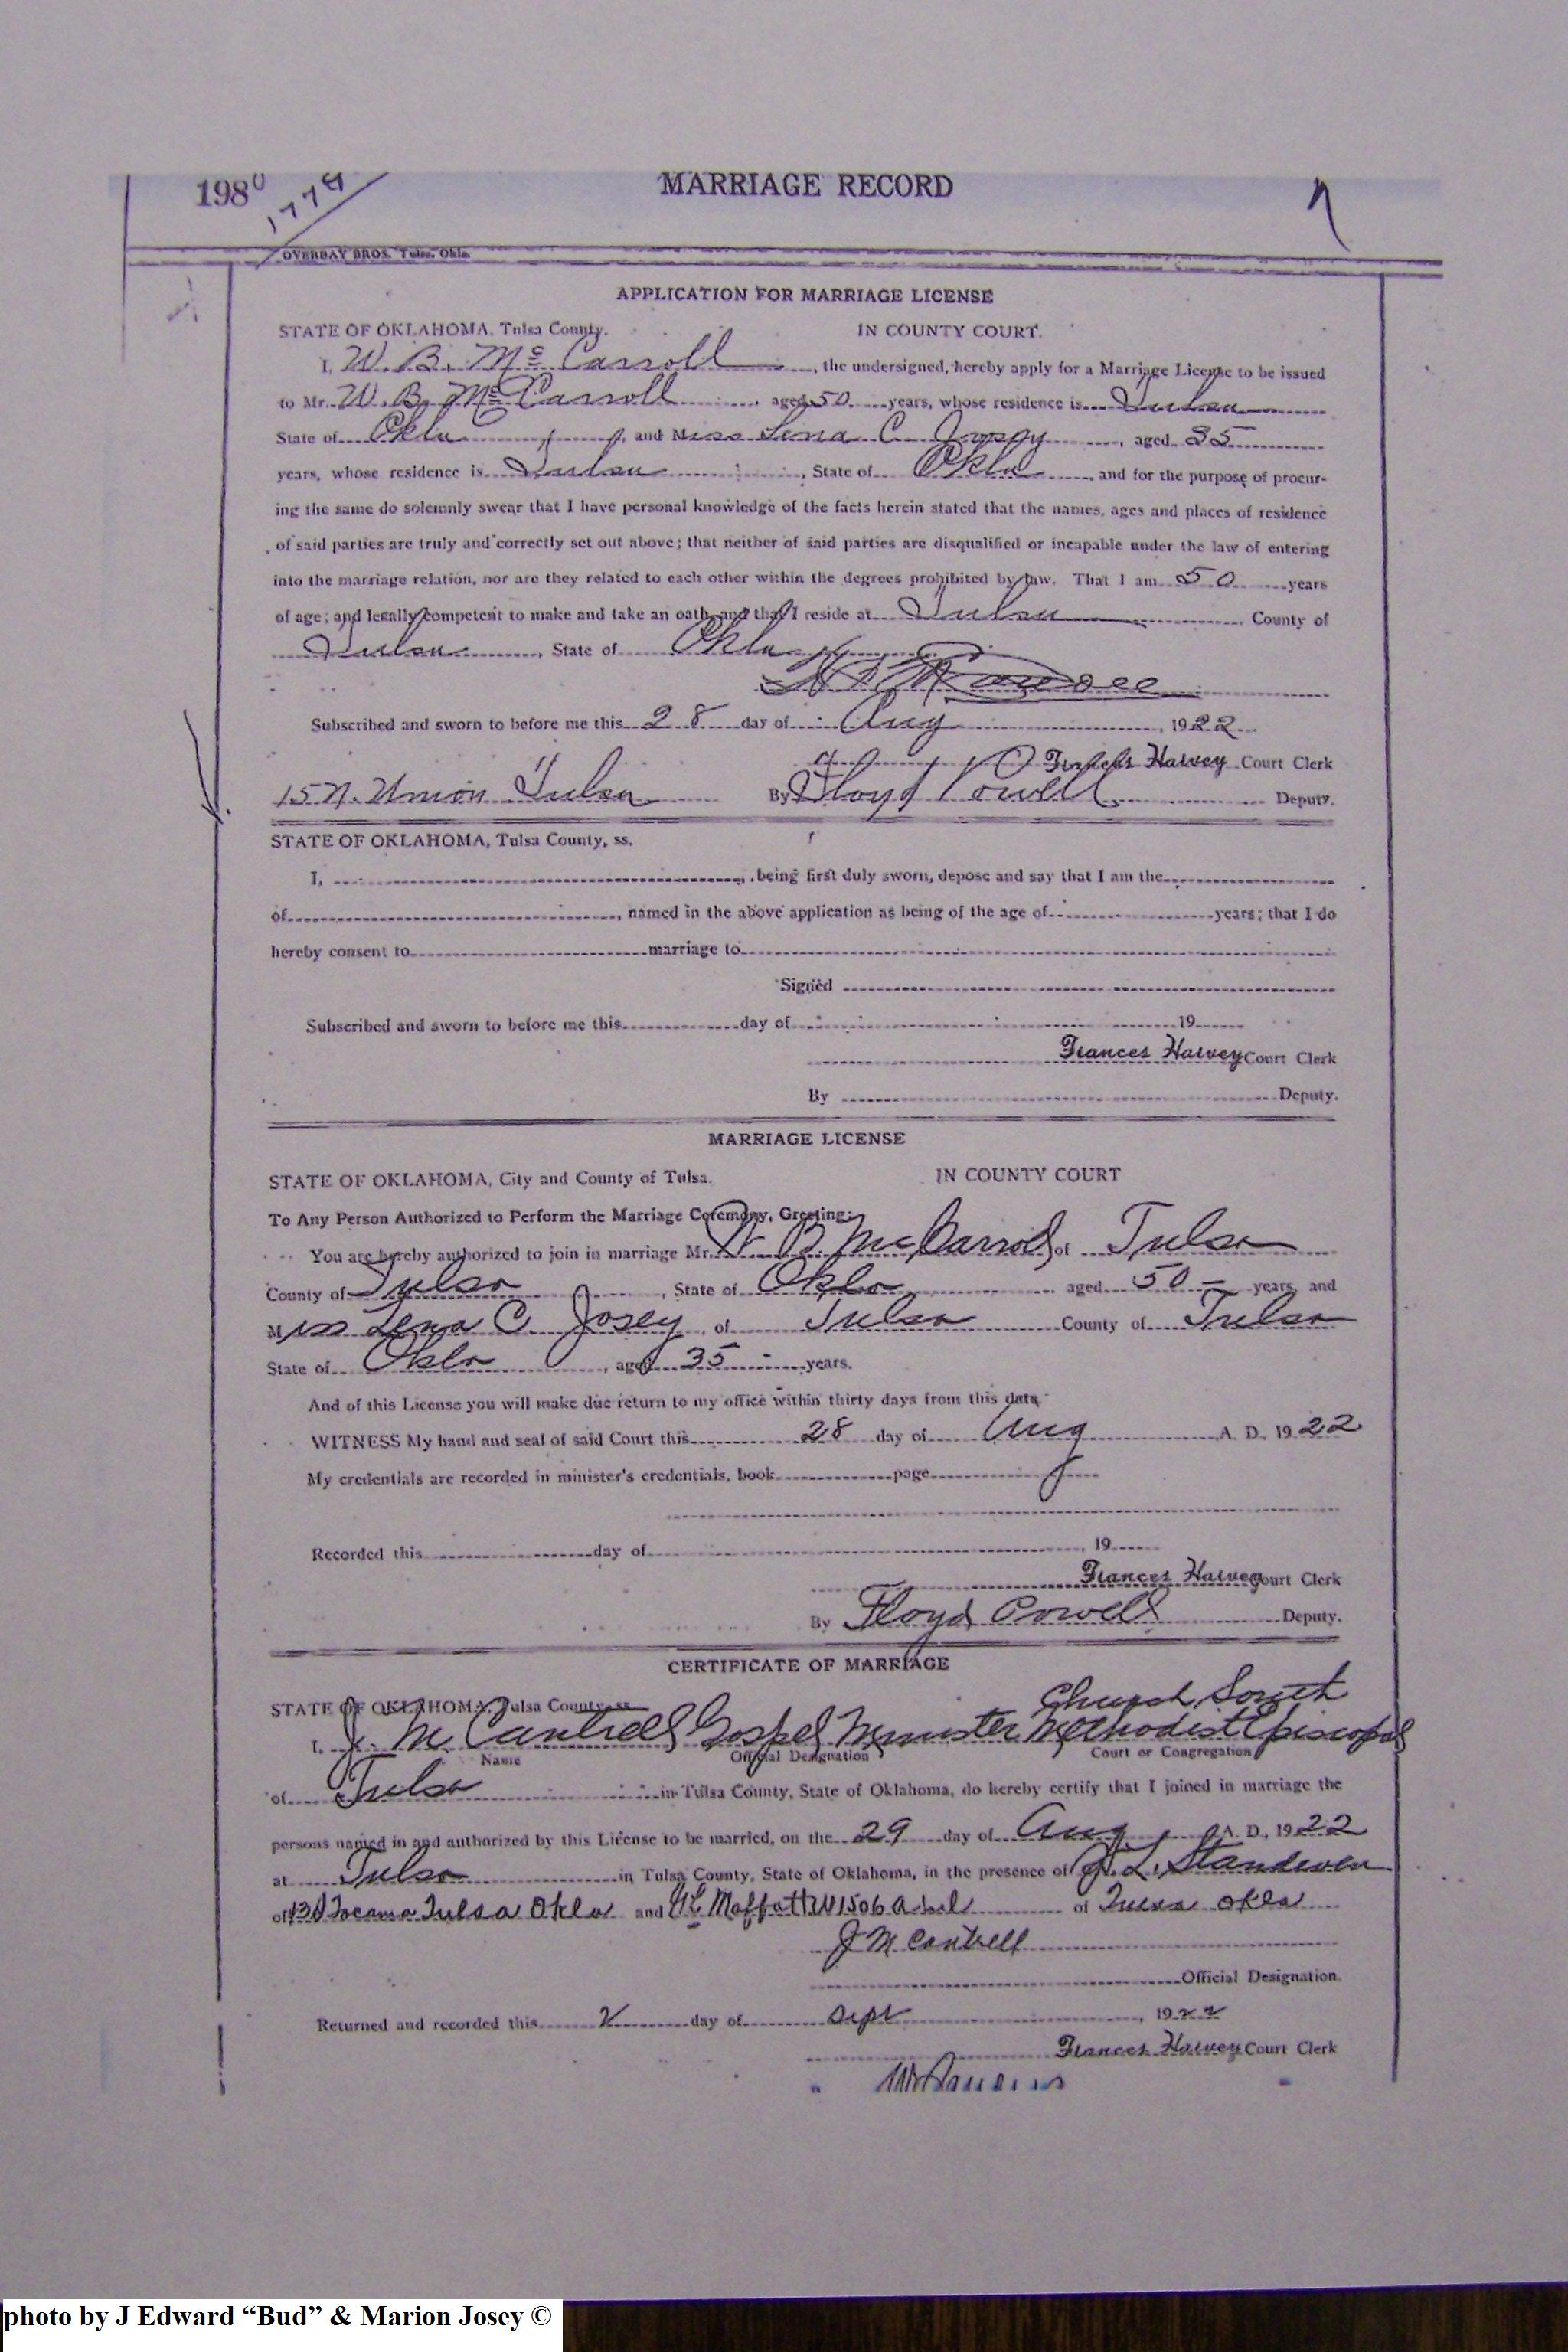 198
1779
MARRIAGE RECORD
OVERBAY BROS. Tulsa, Okla.
APPLICATION FOR MARRIAGE LICENSE
STATE OF OKLAHOMA, Tulsa County. IN COUNTY COURT.
I, W. B. Mc Carroll, the undersigned, hereby apply for a Marriage License to be issued
to Mr. W. B. Mc Carroll aged 50 years, whose residence is Tulsa
State of Okla, and Miss Lena C Josey, aged 35
years, whose residence is Tulsa, State of Okla, and for the purpose of procur-
ing the same do solemnly swear that I have personal knowledge of the facts herein stated that the names, ages and places of residence
of said parties are truly and correctly set out above; that neither of said parties are disqualified or incapable under the law of entering
into the marriage relation, nor are they related to each other within the degrees prohibited by law. That I am 50 years
of age; and legally competent to make and take an oath, and that I reside at Tulsa County of
Tulsa, State of Okla
Subscribed and sworn to before me this 28 day of Aug, 1922
Frances Harvey Court Clerk
15 N. Union Tulsa By Floyd Powell Deputy.
STATE OF OKLAHOMA, Tulsa County, ss.
I, , being first duly sworn, depose and say that I am the
of , named in the above application as being of the age of years; that I do
hereby consent to marriage to
Signed
Subscribed and sworn to before me this day of 19
Frances Harvey Court Clerk
By Deputy.
MARRIAGE LICENSE
STATE OF OKLAHOMA, City and County of Tulsa. IN COUNTY COURT
To Any Person Authorized to Perform the Marriage Ceremony, Greeting:
You are hereby authorized to join in marriage Mr. W B McCarroll of Tulsa
County of Tulsa, State of Okla aged 50 years and
Miss Lena C Josey, of Tulsa County of Tulsa
State of Okla, aged 35 years.
And of this License you will make due return to my office within thirty days from this date.
WITNESS My hand and seal of said Court this 28 day of Aug A. D., 1922
My credentials are recorded in minister's credentials, book page
Recorded this day of , 19
Frances Harvey Court Clerk
By Floyd Powell Deputy.
CERTIFICATE OF MARRIAGE
STATE OF OKLAHOMA, Tulsa County, ss. Church South
I, J. M Cantrell Gospel Minister Methodist Episcopal
Name Official Designation Court or Congregation
of Tulsa in Tulsa County, State of Oklahoma, do hereby certify that I joined in marriage the
persons named in and authorized by this License to be married, on the 29 day of Aug A. D., 1922
at Tulsa in Tulsa County, State of Oklahoma, in the presence of J. L. Standeven
of Tulsa Okla and Moffatt 1506 of Tulsa Okla
J M Cantrell
Official Designation.
Returned and recorded this 2 day of Sept, 1922
Frances Harvey Court Clerk
photo by J Edward “Bud” & Marion Josey ©